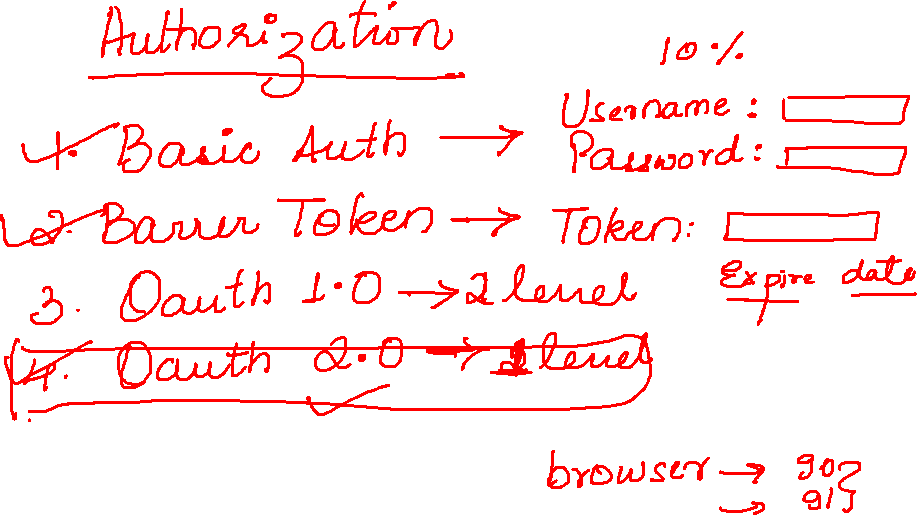 Authorization
10%
1. Basic Auth → Username:
Password:
2. Barrer Token → Token:
Expire date
3. Oauth 1.0 → 2 level
4. Oauth 2.0 → 1 level
browser → 90
→ 91